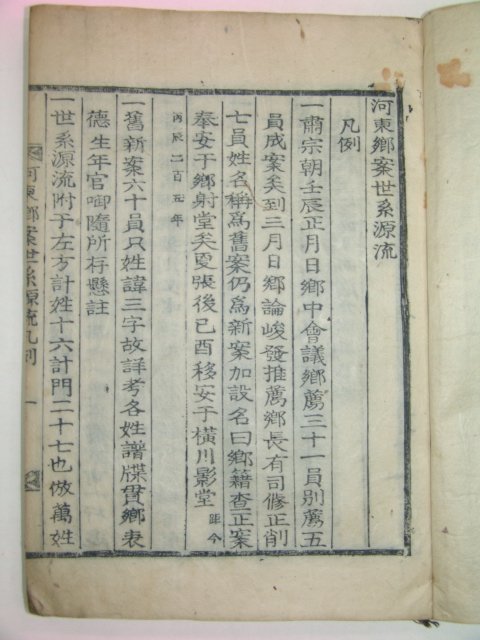 河東鄉案世系源流
凡例
一肅宗朝壬辰正月日鄉中會議鄉薦三十一員別薦五
員成案矣到三月日鄉論峻發推薦鄉長有司修正削
七員姓名稱爲舊案仍爲新案加設名曰鄉籍查正案
奉安于鄉射堂矣夏張後己酉移安于橫川影堂距今
丙辰二百五年
一舊新案六十員只姓諱三字故詳考各姓譜牒貫鄉表
德生年官啣隨所存懸註
一世系源流附于左方計姓十六計門二十七也倣萬姓
河東鄉案世系源流凡例 一